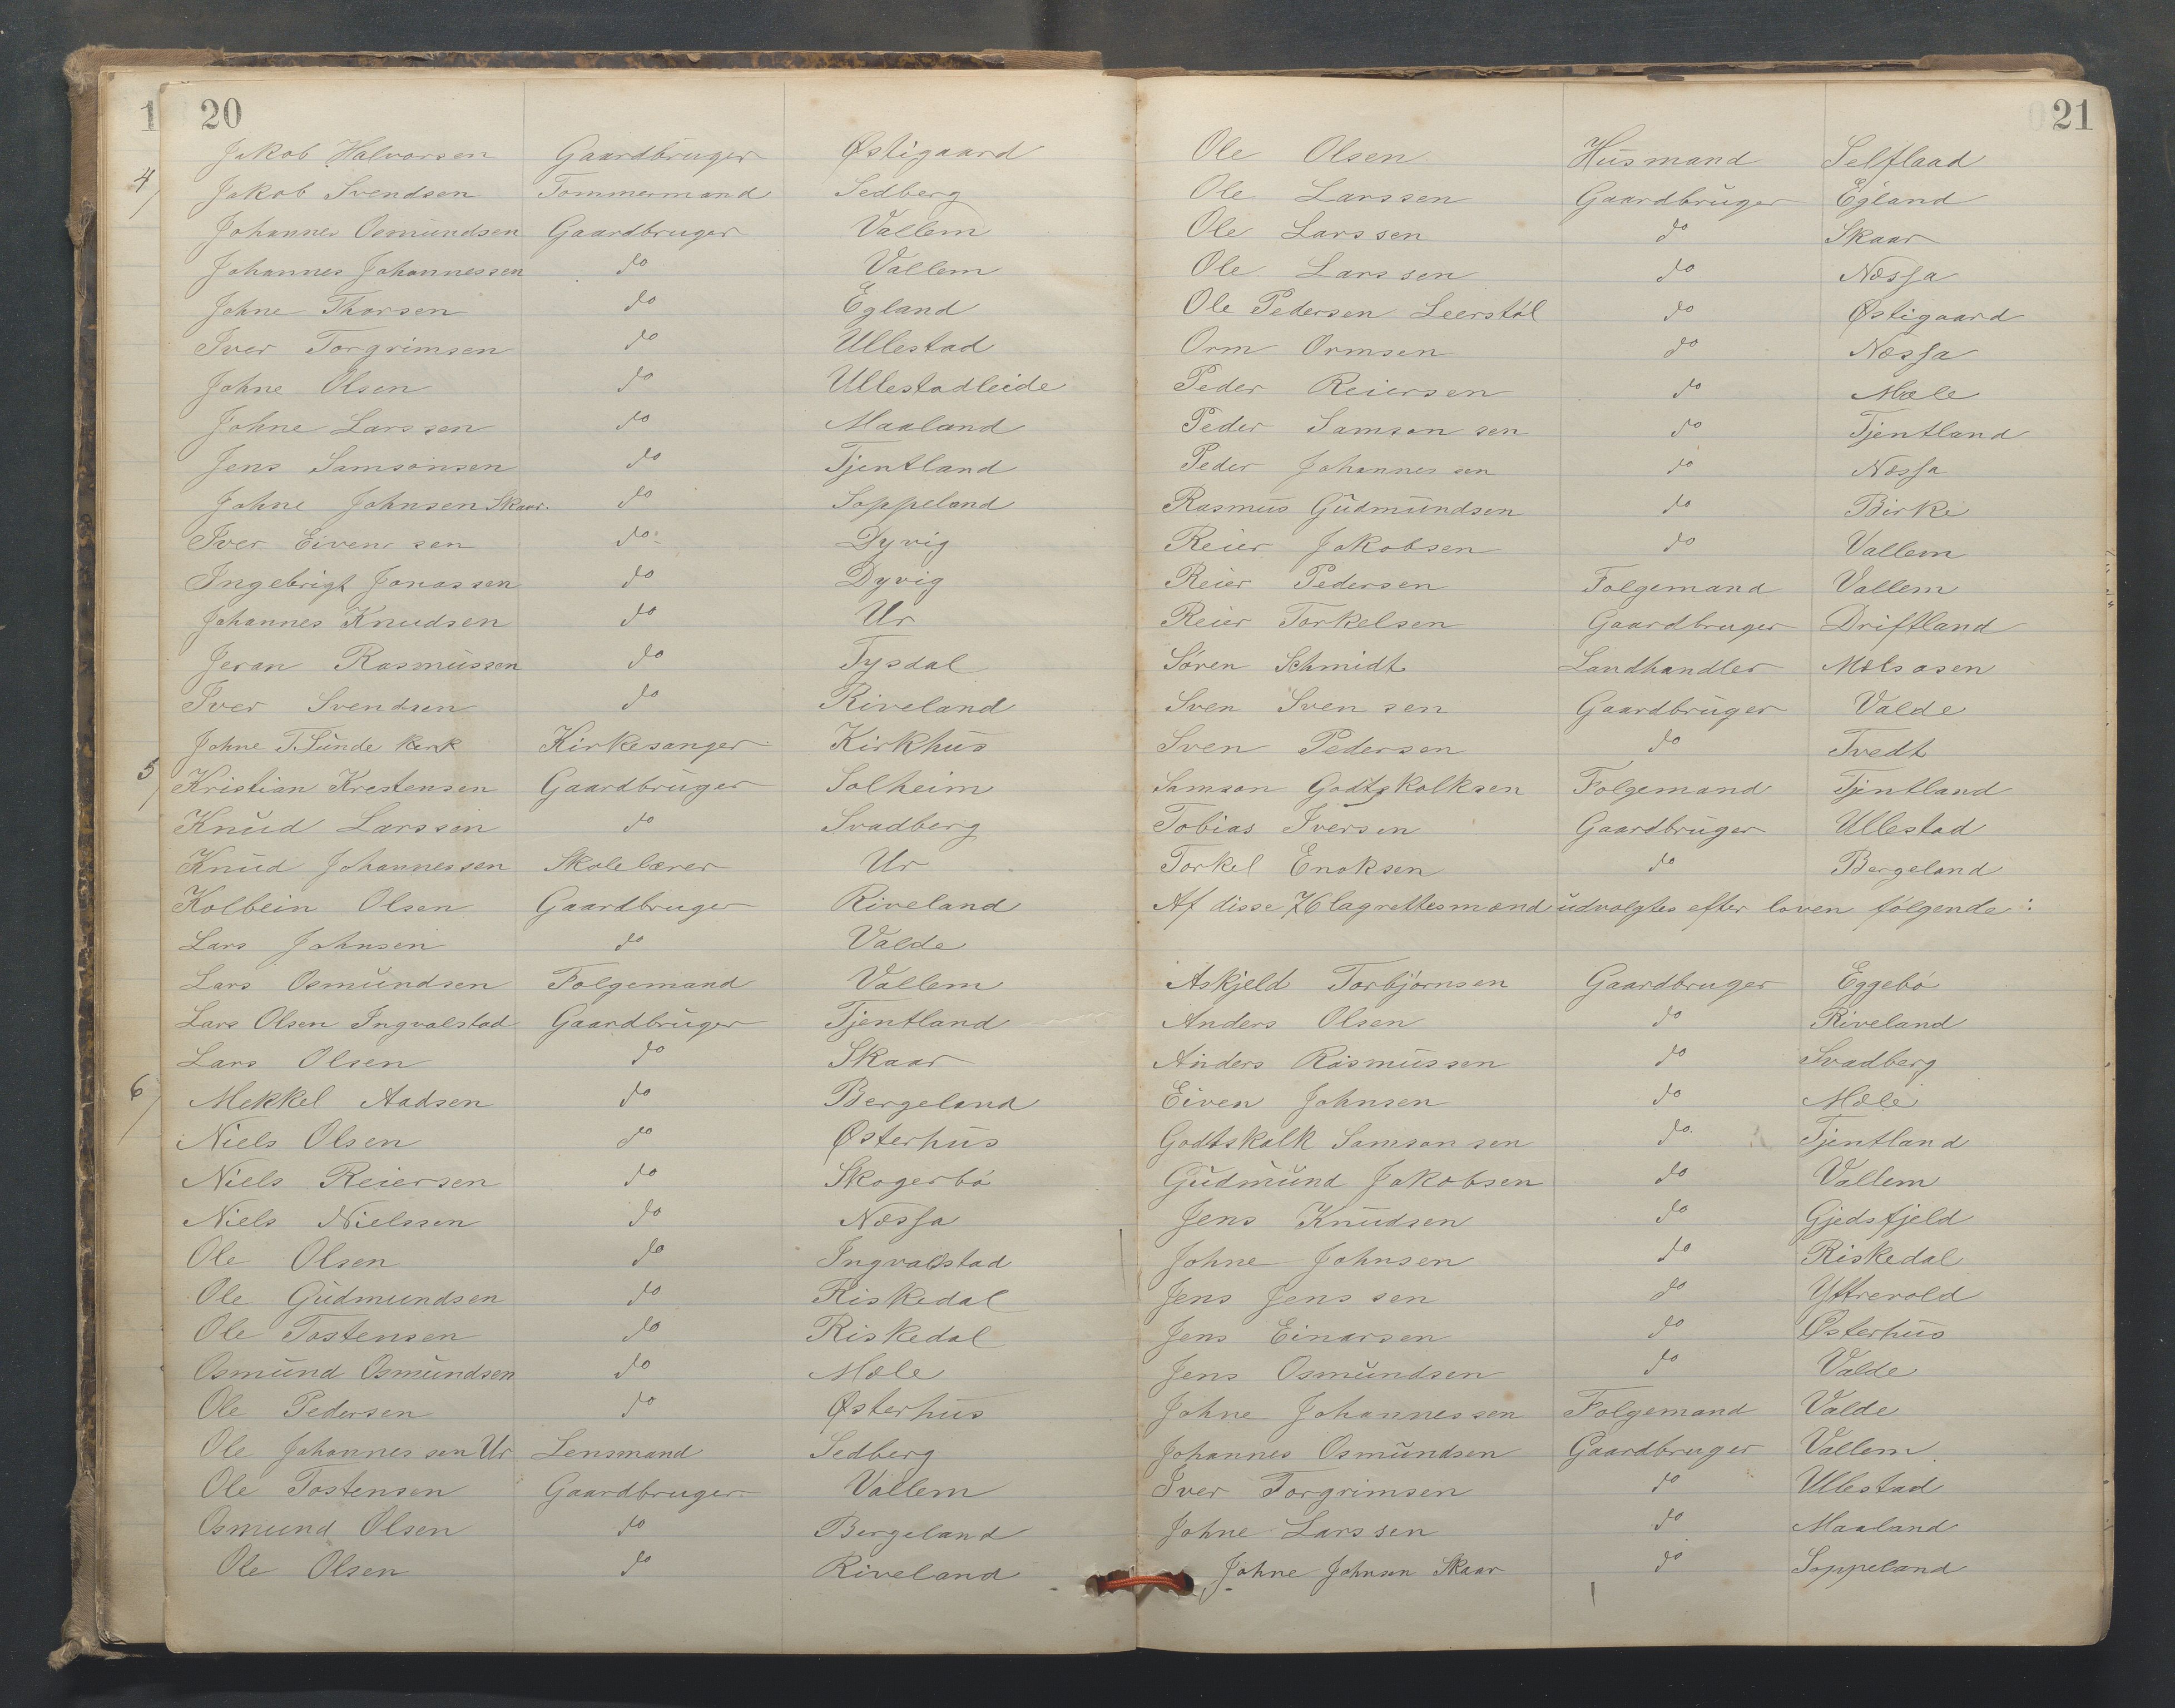 1 20
Jakob Halvorsen Gaardbruger Østigaard
4/ Jakob Svendsen Tommermand Sedberg
Johannes Osmundsen Gaardbruger Vallem
Johannes Johannessen do Vallem
Johne Thorsen do Egland
Iver Torgrimsen do Ullestad
Johne Olsen do Ullestadleide
Johne Larssen do Maaland
Jens Samsonsen do Tjentland
Johne Johnsen Skaar do Soppeland
Iver Eivensen do Dyvig
Ingebrigt Jonassen do Dyvig
Johannes Knudsen do Ur
Jeran Rasmussen do Tysdal
Iver Svendsen do Riveland
Johne T. Sunde Kirk Kirkesanger Kirkhus
5/ Kristian Krestensen Gaardbruger Solheim
Knud Larssen do Svadberg
Knud Johannessen Skolelærer Ur
Kolbein Olsen Gaardbruger Riveland
Lars Johnsen do Valde
Lars Osmundsen Folgemand Vallem
Lars Olsen Ingvalstad Gaardbruger Tjentland
Lars Olsen do Skaar
6/ Mekkel Aadsen do Bergeland
Niels Olsen do Østerhus
Niels Reiersen do Skogerbó
Niels Nielssen do Nessa
Ole Olsen do Ingvalstad
Ole Gudmundsen do Riskedal
Ole Tostensen do Riskedal
Osmund Osmundsen do Mæle
Ole Pedersen do Østerhus
Ole Johannessen Ur Lensmand Sedberg
Ole Tostensen Gaardbruger Vallem
Osmund Olsen do Bergeland
Ole Olsen do Riveland
21
Ole Olsen Husmand Selflaad
Ole Larssen Gaardbruger Egland
Ole Larssen do Skaar
Ole Larssen do Nessa
Ole Pedersen Leerstól do Østigaard
Orm Ormsen do Nessa
Peder Reiersen do Mæle
Peder Samsonsen do Tjentland
Peder Johannessen do Nessa
Rasmus Gudmundsen do Birke
Reier Jakobsen do Vallem
Reier Pedersen Folgemand Vallem
Reier Torkelsen Gaardbruger Driftland
Sóren Schmidt Landhandler Mælsosen
Sven Svensen Gaardbruger Valde
Sven Pedersen do Tvedt
Samson Godtskolksen Folgemand Tjentland
Tobias Iversen Gaardbruger Ullestad
Torkel Enoksen do Bergeland
Af disse 76 lagrettesmænd udvalgtes efter loven fólgende:
Askjeld Torbjórnsen Gaardbruger Eggebó
Anders Olsen do Riveland
Anders Rasmussen do Svadberg
Eiven Johnsen do Mæle
Godtskalk Samsonsen do Tjentland
Gudmund Jakobsen do Vallem
Jens Knudsen do Gjedsfjeld
Johne Johnsen do Riskedal
Jens Jenssen do Yttrevold
Jens Einarsen do Østerhus
Jens Osmundsen do Valde
Johne Johannessen Folgemand Valde
Johannes Osmundsen Gaardbruger Vallem
Iver Torgrimsen do Ullestad
Johne Larssen do Maaland
Johne Johnsen Skaar do Soppeland